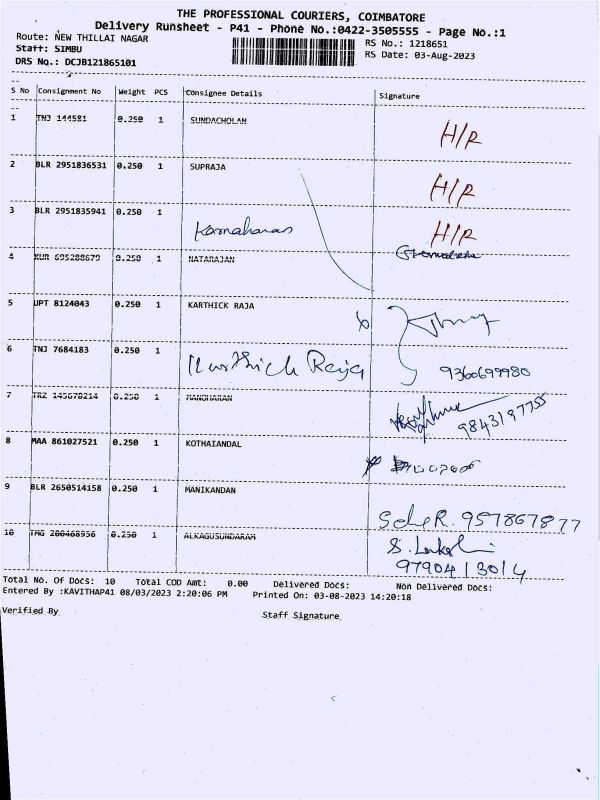 THE PROFESSIONAL COURIERS, COIMBATORE
Delivery Runsheet - P41 - Phone No.:0422-3505555 - Page No.:1
Route: NEW THILLAI NAGAR RS No.: 1218651
Staff: SIMBU RS Date: 03-Aug-2023
DRS No.: DCJB121865101
S No Consignment No Weight PCS Consignee Details Signature
1 TNJ 144581 0.250 1 SUNDACHOLAN H/R
2 BLR 2951836531 0.250 1 SUPRAJA H/R
3 BLR 2951835941 0.250 1 H/R
4 KUR 695288679 0.250 1 NATARAJAN
5 UPT 8124043 0.250 1 KARTHICK RAJA
6 TNJ 7684183 0.250 1 Karthick Raja 9360699980
7 TRZ 145678214 0.250 1 MANOHARAN 9843197755
8 MAA 861027521 0.250 1 KOTHAIANDAL
9 BLR 2650514158 0.250 1 MANIKANDAN
957867877
10 TMG 200468956 0.250 1 ALKAGUSUNDARAM
9790413014
Total No. Of Docs: 10 Total COD Amt: 0.00 Delivered Docs: Non Delivered Docs:
Entered By :KAVITHAP41 08/03/2023 2:20:06 PM Printed On: 03-08-2023 14:20:18
Verified By Staff Signature